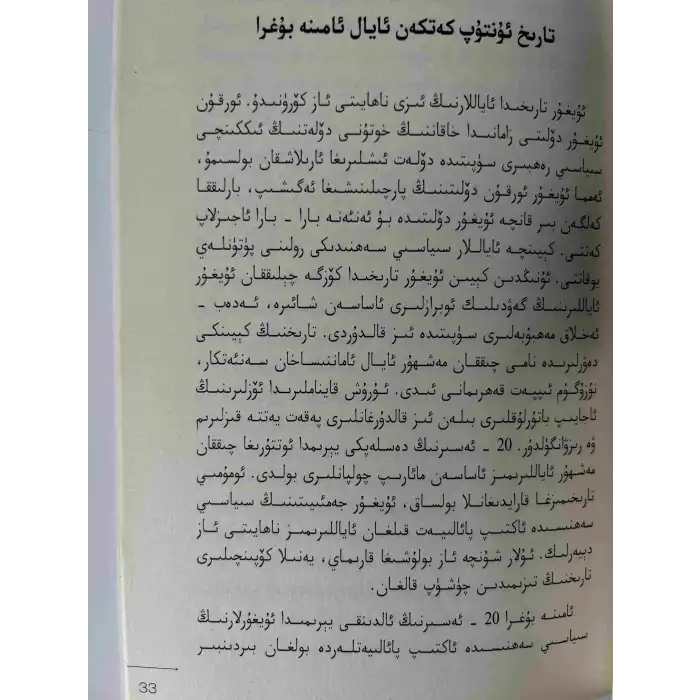 تارىخ ئۇنتۇپ كەتكەن ئايال ئامىنە بۇغرا
ئۇيغۇر تارىخىدا ئاياللارنىڭ ئىزى ناھايىتى ئاز كۆرۈنىدۇ. ئورقۇن
ئۇيغۇر دۆلىتى زامانىدا خاقاننىڭ خوتۇنى دۆلەتنىڭ ئىككىنچى
سىياسىي رەھبىرى سۈپىتىدە دۆلەت ئىشلىرىغا ئارىلاشقان بولسىمۇ،
ئەمما ئۇيغۇر ئورقۇن دۆلىتىنىڭ پارچىلىنىشىغا ئەگىشىپ، بارلىققا
كەلگەن بىر قانچە ئۇيغۇر دۆلىتىدە بۇ ئەنئەنە بارا - بارا ئاجىزلاپ
كەتتى. كېيىنچە ئاياللار سىياسىي سەھنىدىكى رولىنى پۈتۈنلەي
يوقاتتى. ئۇنىڭدىن كېيىن ئۇيغۇر تارىخىدا كۆزگە چېلىققان ئۇيغۇر
ئاياللىرىنىڭ گەۋدىلىك ئوبرازلىرى ئاساسەن شائىرە، ئەدەب -
ئەخلاق مەھبۇبەلىرى سۈپىتىدە ئىز قالدۇردى. تارىخنىڭ كېيىنكى
دەۋرلىرىدە نامى چىققان مەشھۇر ئايال ئاماننىساخان سەنئەتكار،
نۇزۇگۇم ئىپپەت قەھرىمانى ئىدى. ئۇرۇش قايناملىرىدا ئۆزلىرىنىڭ
ئاجايىپ باتۇرلۇقلىرى بىلەن ئىز قالدۇرغانلىرى پەقەت يەتتە قىزلىرىم
ۋە رىزۋانگۈلدۇر. 20 - ئەسىرنىڭ دەسلەپكى يېرىمدا ئوتتۇرىغا چىققان
مەشھۇر ئاياللىرىمىز ئاساسەن مائارىپ چولپانلىرى بولدى. ئومۇمىي
تارىخىمىزغا قارايدىغانلا بولساق، ئۇيغۇر جەمئىيىتىنىڭ سىياسىي
سەھنىسىدە ئاكتىپ پائالىيەت قىلغان ئاياللىرىمىز ناھايىتى ئاز
دېيەرلىك. ئۇلار شۇنچە ئاز بولۇشىغا قارىماي، يەنىلا كۆپىنچىلىرى
تارىخنىڭ تىزىمىدىن چۈشۈپ قالغان.
ئامىنە بۇغرا 20 - ئەسىرنىڭ ئالدىنقى يېرىمدا ئۇيغۇرلارنىڭ
سىياسىي سەھنىسىدە ئاكتىپ پائالىيەتلەردە بولغان بىردىنبىر
33